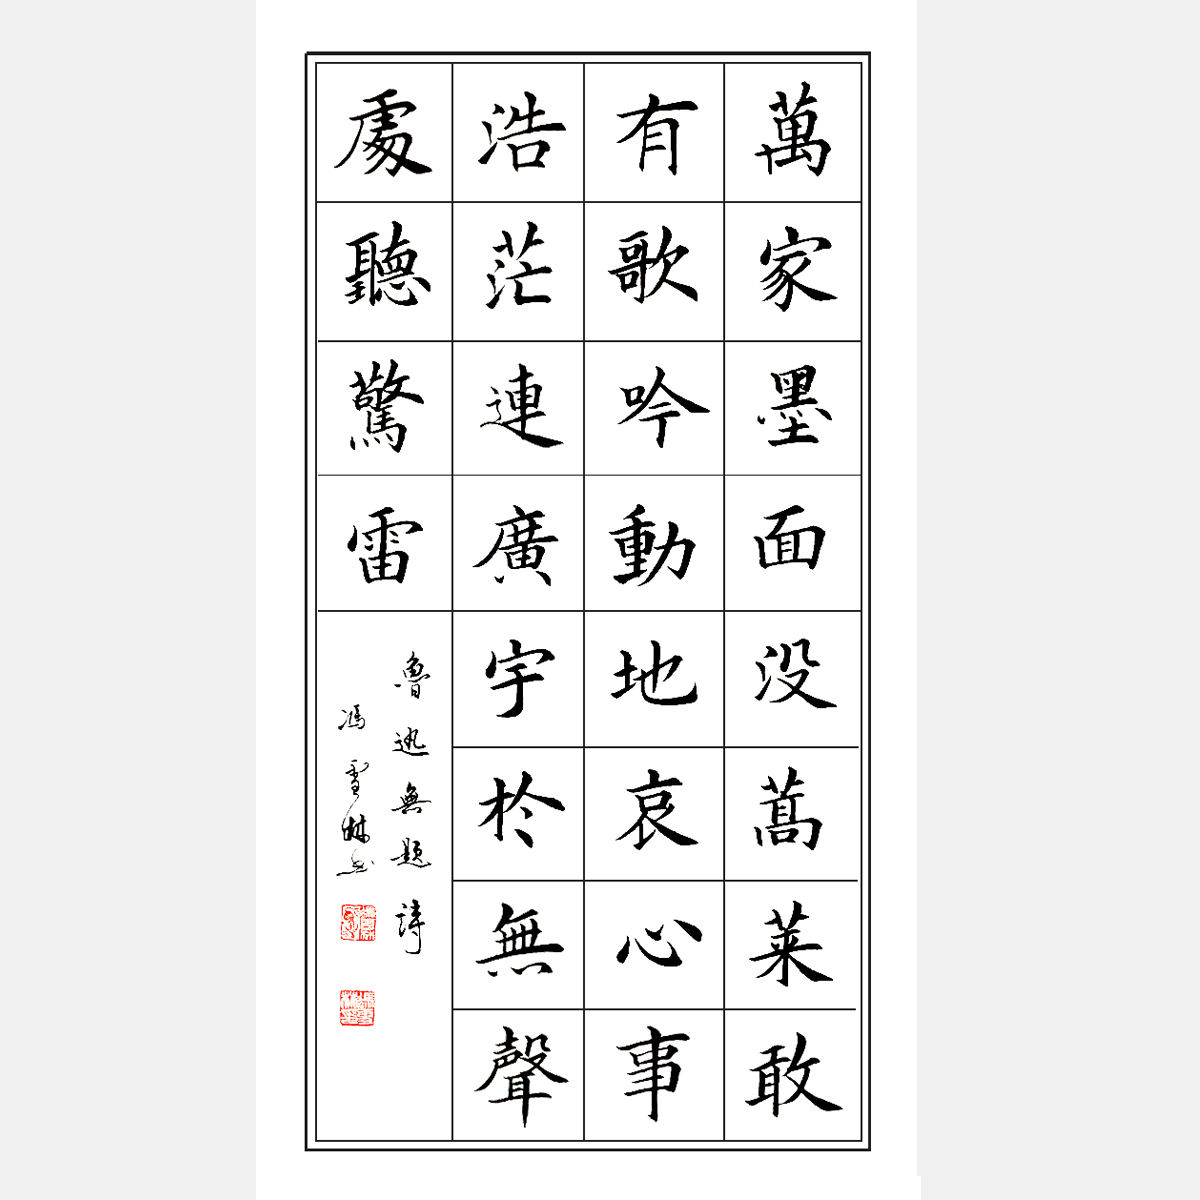 萬家墨面没蒿莱敢
有歌吟動地哀心事
浩茫連廣宇於無聲
處聽驚雷
魯迅無題詩
馮雪林書